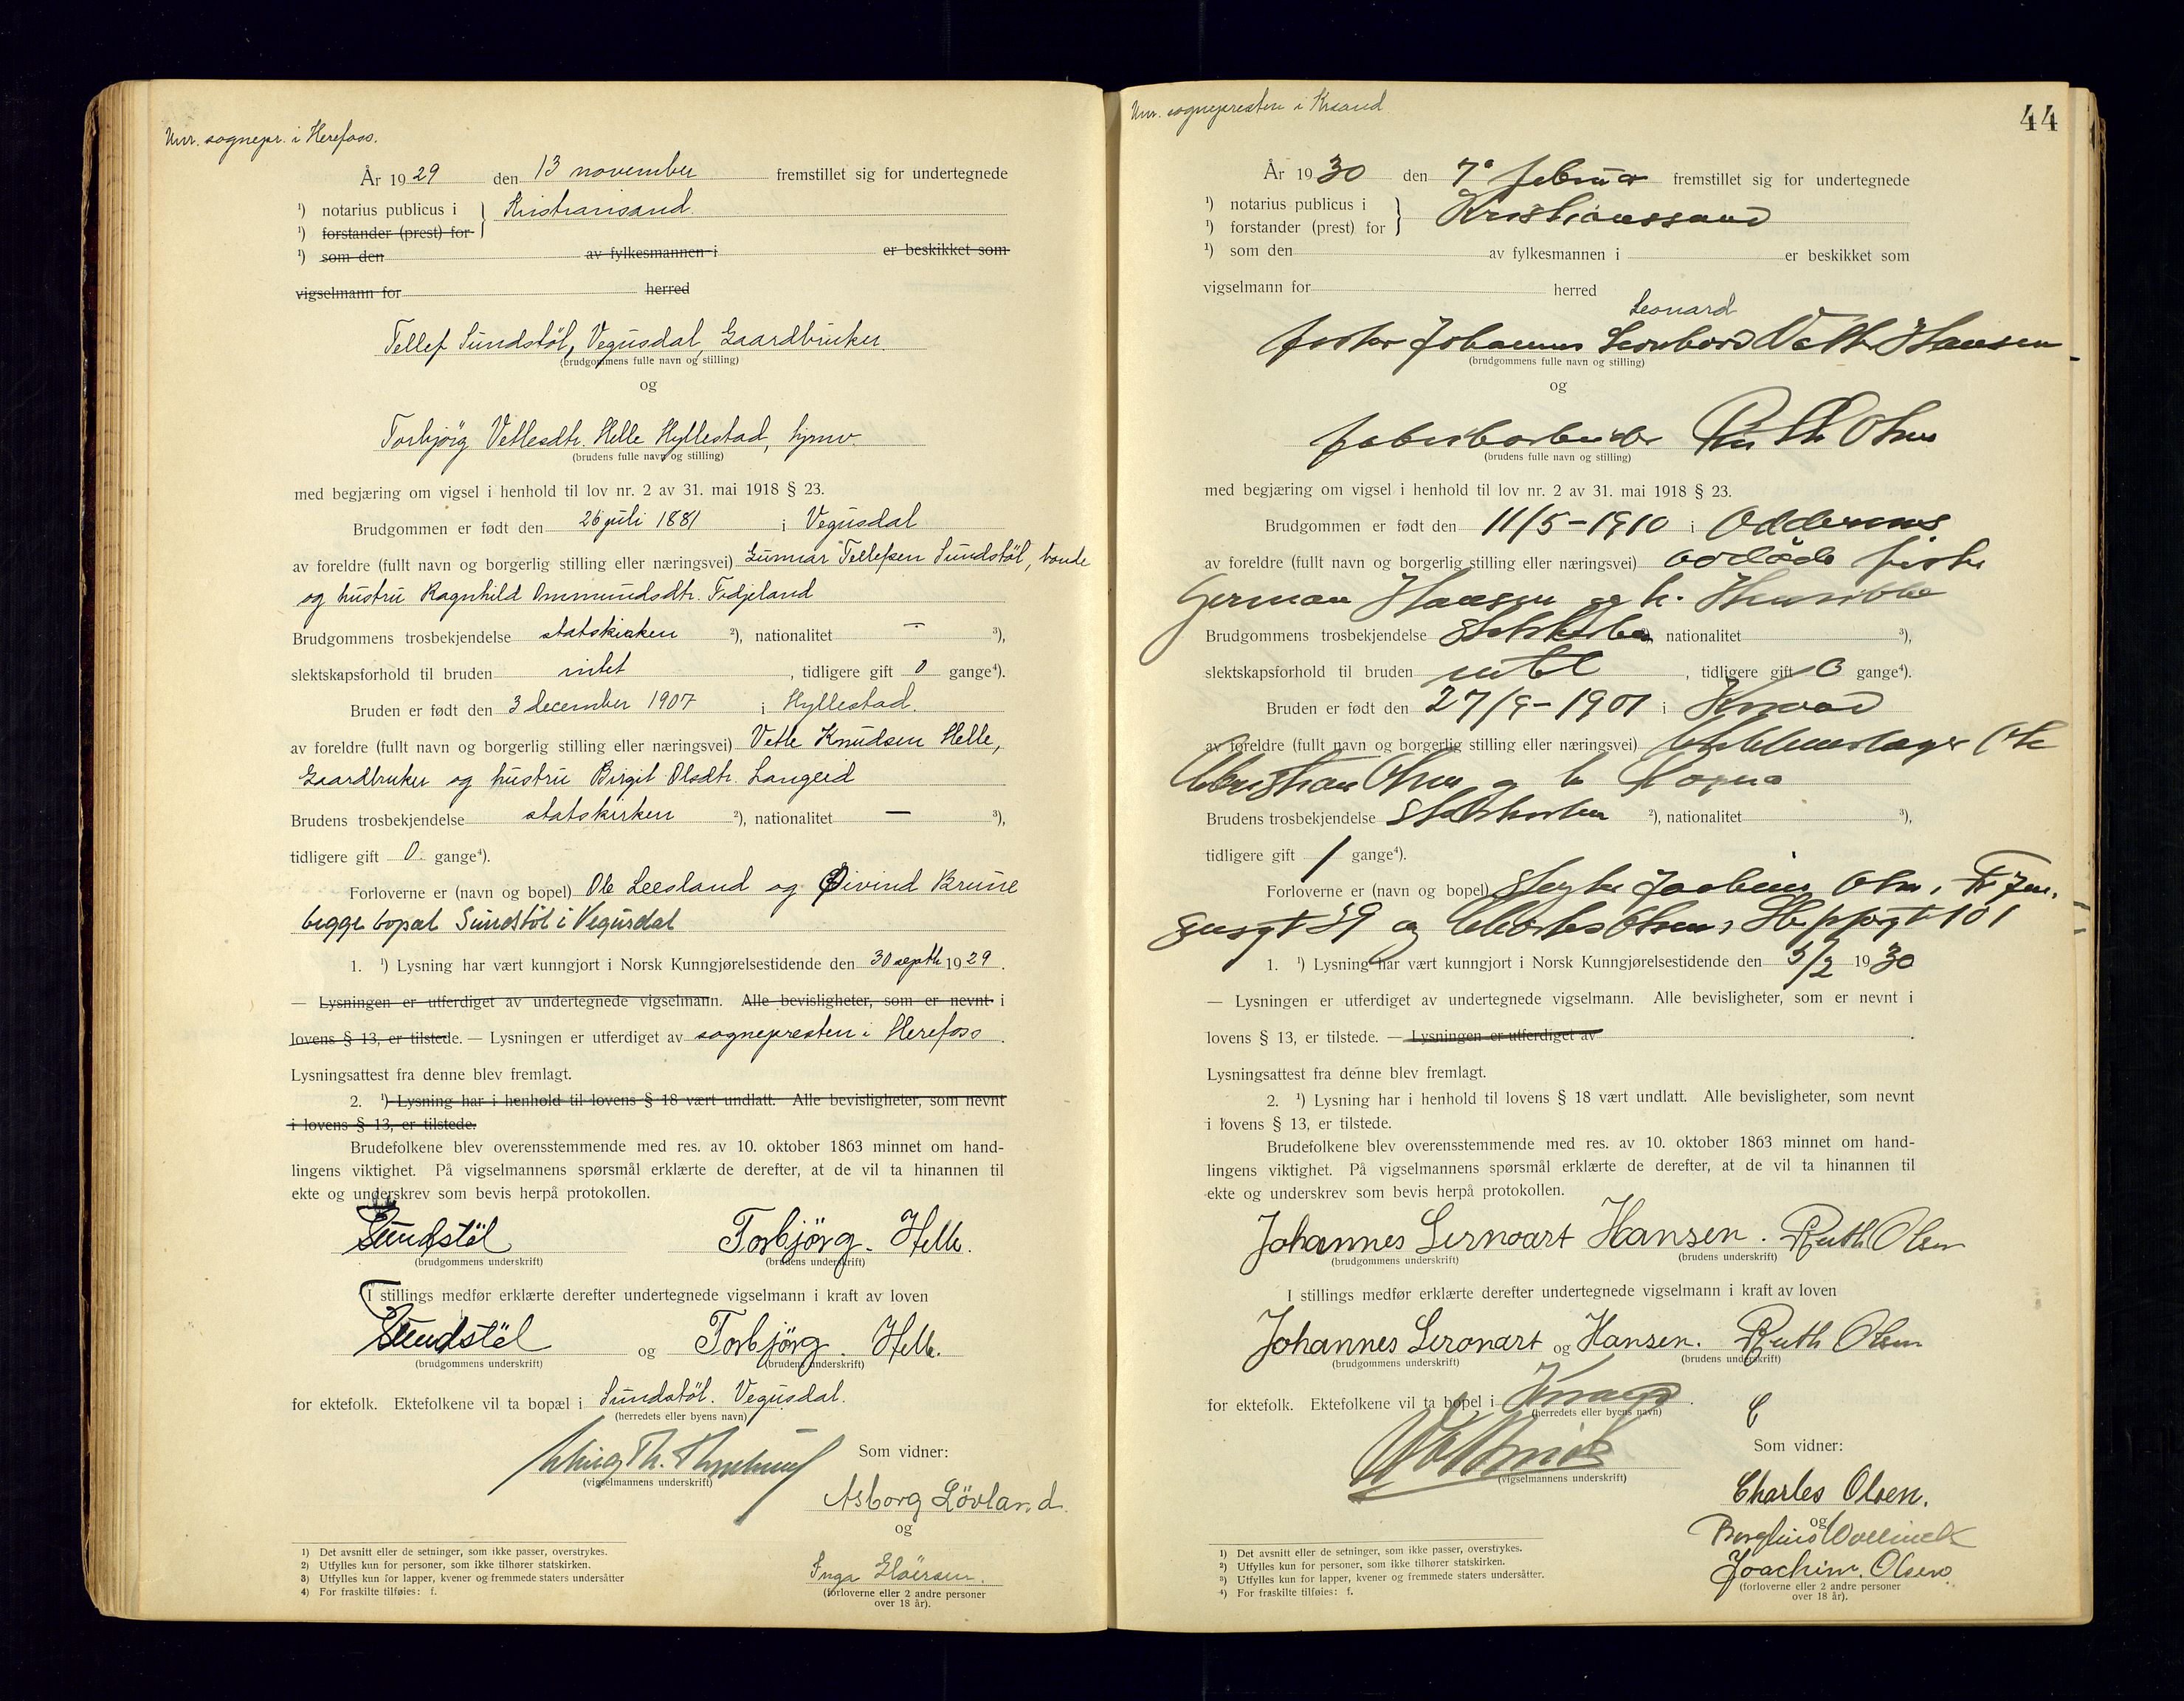 Unr. sognepr. i Herefoss.
År 1929 den 13 november fremstillet sig for undertegnede
¹) notarius publicus i } Kristiansand.
¹) forstander (prest) for
¹) som den av fylkesmannen i er beskikket som
vigselmann for herred
Tellef Sundstöl, Vegusdal, Gaardbruker.
(brudgommens fulle navn og stilling)
og
Torbjörg Vetlesdtr. Helle Hyllestad, hjmv.
(brudens fulle navn og stilling)
med begjæring om vigsel i henhold til lov nr. 2 av 31. mai 1918 § 23.
Brudgommen er født den 26 juli 1881 i Vegusdal
av foreldre (fullt navn og borgerlig stilling eller næringsvei) Gunnar Tellefsen Sundstöl, bonde
og hustru Ragnhild Ommundsdtr. Fidjeland
Brudgommens trosbekjendelse statskirken ²), nationalitet — ³),
slektskapsforhold til bruden intet , tidligere gift 0 gange⁴).
Bruden er født den 3 december 1907 i Hyllestad.
av foreldre (fullt navn og borgerlig stilling eller næringsvei) Vetle Knudsen Helle,
Gaardbruker og hustru Birgit Olsdtr. Langeid
Brudens trosbekjendelse statskirken ²), nationalitet — ³),
tidligere gift 0. gange⁴).
Forloverne er (navn og bopel) Ole Leesland og Øivind Brune
begge bopæl Sundstöl i Vegusdal
1. ¹) Lysning har vært kunngjort i Norsk Kunngjørelsestidende den 30 septbr 1929.
— Lysningen er utferdiget av undertegnede vigselmann. Alle bevisligheter, som er nevnt i
lovens § 13, er tilstede. — Lysningen er utferdiget av sognepresten i Herefoss.
Lysningsattest fra denne blev fremlagt.
2. ¹) Lysning har i henhold til lovens § 18 vært undlatt. Alle bevisligheter, som nevnt
i lovens § 13, er tilstede.
Brudefolkene blev overensstemmende med res. av 10. oktober 1863 minnet om hand-
lingens viktighet. På vigselmannens spørsmål erklærte de derefter, at de vil ta hinannen til
ekte og underskrev som bevis herpå protokollen.
Sundstöl Torbjörg. Helle.
(brudgommens underskrift) (brudens underskrift)
I stillings medfør erklærte derefter undertegnede vigselmann i kraft av loven
Sundstöl og Torbjörg. Helle.
(brudgommens underskrift) (brudens underskrift)
for ektefolk. Ektefolkene vil ta bopæl i Sundstöl. Vegusdal.
(herredets eller byens navn)
Som vidner:
(vigselmannens underskrift)
Asborg Lövland.
og
Inga
(forloverne eller 2 andre personer
over 18 år).
1) Det avsnitt eller de setninger, som ikke passer, overstrykes.
2) Utfylles kun for personer, som ikke tilhører statskirken.
3) Utfylles kun for lapper, kvener og fremmede staters undersåtter
4) For fraskilte tilføies: f.
Unr. sognepresten i Krsand
44
År 1930 den 7de februar fremstillet sig for undertegnede
¹) notarius publicus i } Kristianssand
¹) forstander (prest) for
¹) som den av fylkesmannen i er beskikket som
vigselmann for herred
Leonard
fisker Johannes Hansen
(brudgommens fulle navn og stilling)
og
fabrikarbeider Ruth Olsen
(brudens fulle navn og stilling)
med begjæring om vigsel i henhold til lov nr. 2 av 31. mai 1918 § 23.
Brudgommen er født den 11/5-1910 i Oddernes
av foreldre (fullt navn og borgerlig stilling eller næringsvei) avdøde fisker
German Hansen og h. Henrikke
Brudgommens trosbekjendelse statskirken ²), nationalitet ³),
slektskapsforhold til bruden intet , tidligere gift 0 gange⁴).
Bruden er født den 27/9-1901 i Krsand
av foreldre (fullt navn og borgerlig stilling eller næringsvei)
Christian Olsen og h
Brudens trosbekjendelse statskirken ²), nationalitet ³),
tidligere gift 1 gange⁴).
Forloverne er (navn og bopel) Joakim Olsen,
og Charles Olsen, 101
1. ¹) Lysning har vært kunngjort i Norsk Kunngjørelsestidende den 5/2 1930
— Lysningen er utferdiget av undertegnede vigselmann. Alle bevisligheter, som er nevnt i
lovens § 13, er tilstede. — Lysningen er utferdiget av .
Lysningsattest fra denne blev fremlagt.
2. ¹) Lysning har i henhold til lovens § 18 vært undlatt. Alle bevisligheter, som nevnt
i lovens § 13, er tilstede.
Brudefolkene blev overensstemmende med res. av 10. oktober 1863 minnet om hand-
lingens viktighet. På vigselmannens spørsmål erklærte de derefter, at de vil ta hinannen til
ekte og underskrev som bevis herpå protokollen.
Johannes Lernoart Hansen. Ruth Olsen
(brudgommens underskrift) (brudens underskrift)
I stillings medfør erklærte derefter undertegnede vigselmann i kraft av loven
Johannes Leronart og Hansen. Ruth Olsen
(brudgommens underskrift) (brudens underskrift)
for ektefolk. Ektefolkene vil ta bopel i Krsand.
(herredets eller byens navn)
Som vidner:
(vigselmannens underskrift)
Charles Olsen.
og
Joachim. Olsen.
(forloverne eller 2 andre personer
over 18 år).
1) Det avsnitt eller de setninger, som ikke passer, overstrykes.
2) Utfylles kun for personer, som ikke tilhører statskirken.
3) Utfylles kun for lapper, kvener og fremmede staters undersåtter.
4) For fraskilte tilføies: f.